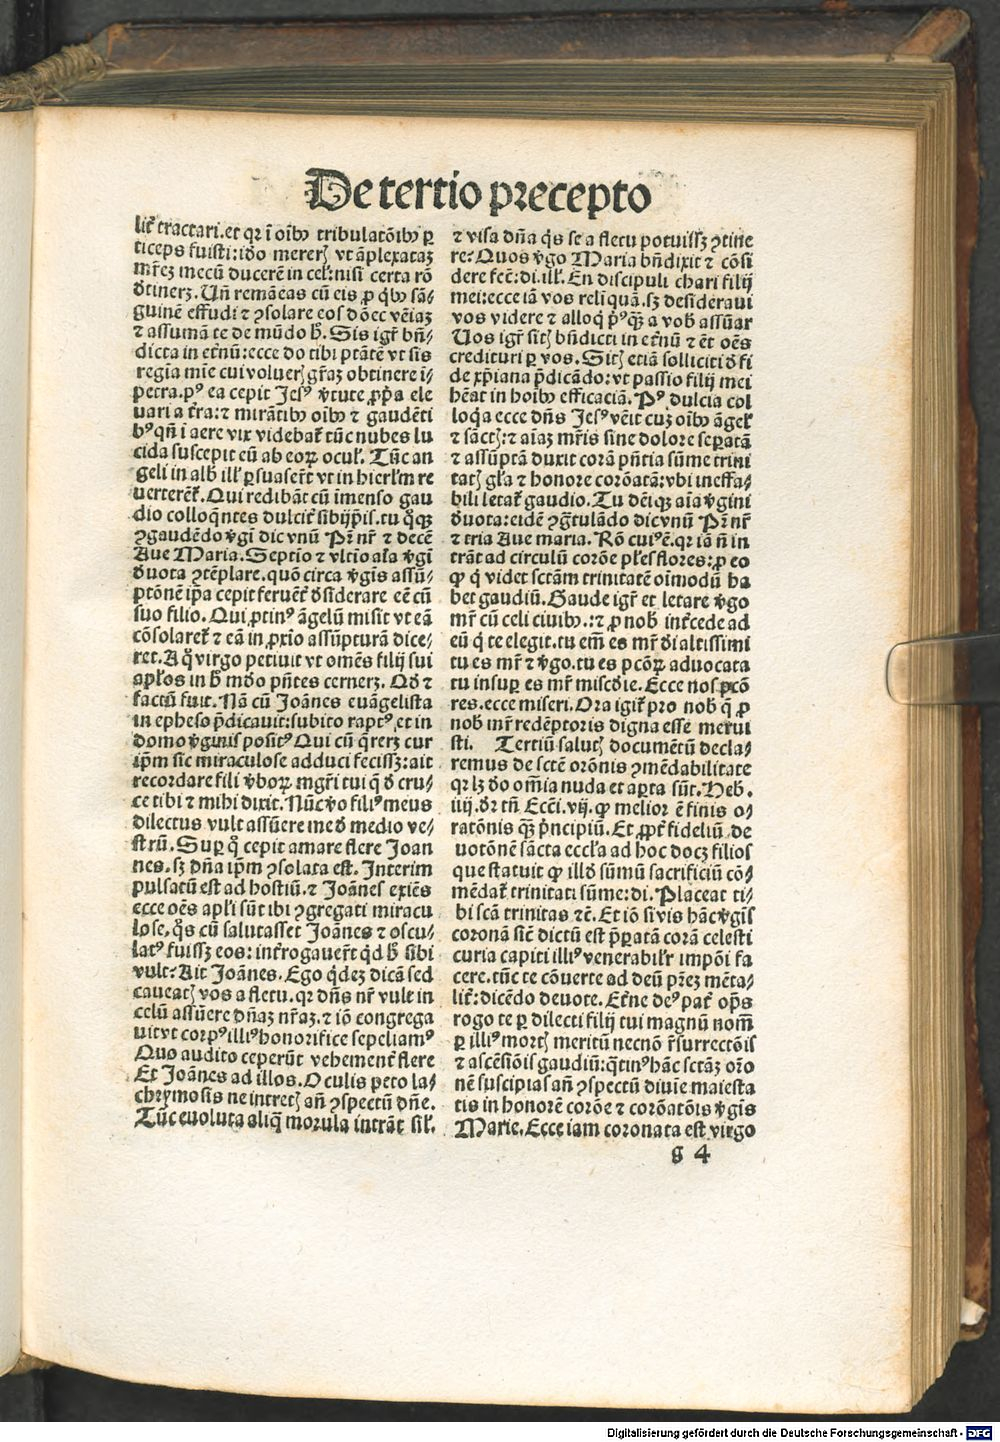 De tertio precepto
lit᷑ tractari.et qꝛ ĩ oĩbꝰ tribulatõibꝰ ꝑ
ticeps fuisti:iđo mererꝭ vt ãplexataꝫ
mr̃eꝫ mecũ ducerẽ in cel̃:nisi certa rõ
đtinerꝫ. Uñ remãeas cũ eis ꝓ qͥbꝰ sã⸗
guinẽ effudi ⁊ ꝯsolare eos dõec vẽiaꝫ
⁊ assumã te de mũdo h̃. Sis igr̃ bñ⸗
dicta in etr̃nũ:ecce do tibi ptãtẽ vt sis
regĩa mĩe cui volueris gr̃aꝫ obtinere ĩ⸗
petra.pꝰ ea cepit Jesꝰ v̾tute ꝓp̃a ele
uari a tr̃a:⁊ mirãtibꝰ oĩbꝰ ⁊ gaudẽti
bꝰ qñ ĩ aere vix videbat᷑ tũc nubes lu
cida suscepit eũ ab eoꝝ ocul̃. Tũc an
geli in alb̃ ill̃ ꝑsuaser̃t vt in hierl̃m re
uerterẽt᷑. Qui redibãt cũ ĩmenso gau
dio colloq̃ntes dulcit᷑ sibijp̃is.tu qͦqꝫ
ꝯgaudẽdo v̾gĩ dic vnũ Pr̃ nr̃ ⁊ decẽ
Aue Maria. Septĩo ⁊ vltĩo aĩa v̾gĩ
đuota ꝯtẽplare.quõ circa v̾gĩs assũ⸗
ptõnẽ ip̃a cepit feruẽt᷑ đsiderare eẽ cũ
suo filio. Qui ꝓtinꝰ ãgelũ misit vt eã
cõsolaret᷑ ⁊ eã in ꝓxio assũpturã dice⸗
ret. A qͦ virgo petiuit vt omẽs filij sui
apl̃os in h̃ mũdo pñtes cernerꝫ. Qđ ⁊
factũ fuit. Nã cũ Joãnes euãgelista
in epheso p̃dicauit:subito raptꝰ,et in
domo v̾ginis positꝰ Qui cũ q̃rerꝫ cur
ip̃m sic miraculose adduci fecissꝫ:ait
recordare fili v̾boꝝ mgr̃i tui q̃ đ cru⸗
ce tibi ⁊ mihi dixit. Nũc v̾o filiꝰ meus
dilectus vult assũere me đ medio ve⸗
strũ. Suꝑ qͦ cepit amare flere Joan
nes.sꝫ dña ip̃m ꝯsolata est. Interim
pulsatũ est ad hostiũ.⁊ Joãnes exiẽs
ecce oẽs apl̃i sũt ibi ꝯgregati miracu
lose, q̃s cũ salutasset Joãnes ⁊ oscu⸗
latꝰ fuissꝫ eos: intr̃rogauer̃t qͥd h̃ sibi
vult? Ait Joãnes. Ego qͥdeꝫ dicã sed
caueatꝭ vos a fletu.qꝛ dñs nr̃ vult in
celũ assũere dñaꝫ nr̃aꝫ.⁊ iõ congrega
uit vt corpꝰ illiꝰ honorifice sepeliamꝰ
Quo audito ceperũt vehement᷑ flere
Et Joãnes ad illos. Oculis peto la⸗
chrymosis ne intretꝭ añ ꝯspectũ dñe.
Tũc euoluta aliq̃ morula intrãt sil̃.
⁊ visa dña q̃s se a fletu potuissꝫ ꝯtine
re? Quos v̾go Maria bñdixit ⁊ cõsi
dere fec̃:di.ill̃. En discipuli chari filij
mei:ecce iã vos relĩquã.sꝫ desideraui
vos videre ⁊ alloqͥ p̾ꝰqꝫ a vob̃ assũar
Uos igr̃ sitꝭ bñdicti in etr̃nũ ⁊ ẽt oẽs
credituri ꝑ vos. Sitꝭ etiã solliciti đ fi
de xp̃iana p̃dicãdo:vt passio filij mei
hẽat in hoĩbꝰ efficaciã. Pꝰ dulcia col
loqͥa ecce dñs Jesꝰ vẽit cuꝫ oĩbꝰ ãgel̃
⁊ sãctꝭ:⁊ aĩaꝫ mr̃is sine dolore seꝑatã
⁊ assũptã duxit corã pñtia sũme trini
tatꝭ gl̃a ⁊ honore corõatã:vbi ineffa⸗
bili letat᷑ gaudio. Tu dẽiqꝫ aĩa v̾gini
đuota:eidẽ ꝯg̃tulãdo dic vnũ Pr̃ nr̃
⁊ tria Aue maria. Rõ cuiꝰ ẽ.qꝛ iã ñ in
trãt ad circulũ corõe pl̃es flores:ꝓ eo
ꝙ q̃ videt sctãm trinitatẽ oĩmodũ ha
bet gaudiũ. Gaude igr̃ et letare v̾go
mr̃ cũ celi ciuibꝰ.:⁊ ꝓ nob̃ intr̃cede ad
eũ q̃ te elegit.tu em̃ es mr̃ đi altissimi
tu es mr̃ ⁊ v̾go.tu es pcõꝝ aduocata
tu insuꝑ es mr̃ miscđie. Ecce nos pcõ
res.ecce miseri. Ora igit᷑ pro nob̃ q̃ ꝓ
nob̃ mr̃ redẽptoris digna esse merui
sti. Tertiũ salutꝭ documẽtũ decla⸗
remus de sctẽ orõnis ꝯmẽdabilitate
qꝛ lꝫ đo om̃ia nuda et aꝑta sũt. Heb.
iiij. đr tñ Ecc̃i. vij. ꝙ melior ẽ finis o⸗
ratõnis qꝫ p̾ncipiũ. Et ꝓpt᷑ fideliũ de
uotõnẽ sãcta eccl̃a ad hoc docꝫ filios
que statuit ꝙ illđ sũmũ sacrificiũ cõ⸗
mẽdat᷑ trinitati sũme:di. Placeat ti⸗
bi scã trinitas ⁊c̃. Et iõ si vis hãc v̾gĩs
coronã sic̃ dictũ est p̃ꝑatã corã celesti
curia capiti illiꝰ venerabilr̃ impõi fa
cere.tũc te cõuerte ad deũ pr̃eꝫ mẽta⸗
lit᷑:dicẽdo deuote. Etr̃ne deꝰ pat᷑ op̃s
rogo te ꝑ dilecti filij tui magnũ nom̃
ꝑ illiꝰ mortꝭ meritũ necnõ r̃surrectõis
⁊ ascẽsiõis gaudiũ:q̃tinꝰ hãc sctãꝫ or̃o
nẽ suscipias añ ꝯspectũ diuĩe maiesta
tis in honorẽ corõe ⁊ corõatõis v̾gĩs
Marie. Ecce iam coronata est virgo
g 4
Digitalisierung gefördert durch die Deutsche Forschungsgemeinschaft - DFG